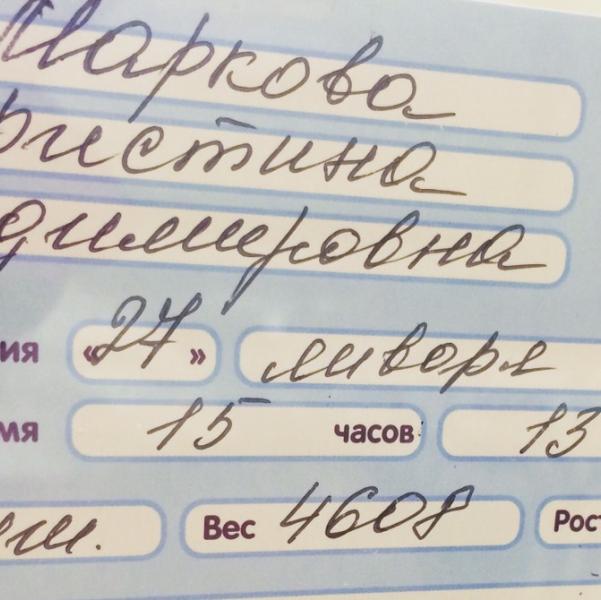 Маркова
ристина
димировна
ия «27» января
мя 15 часов 13
Вес 4608 Рос